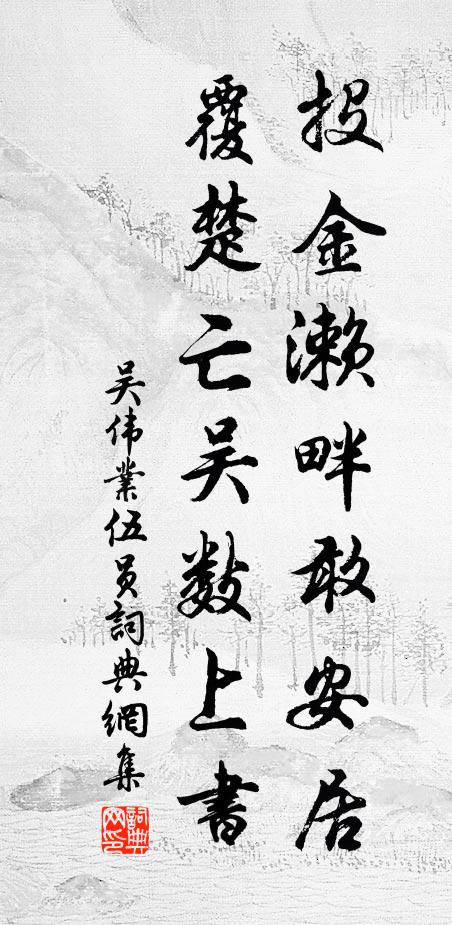 投金濑畔敢安居
覆楚亡吴数上書
吴伟業伍員詞典網集
詞典網印